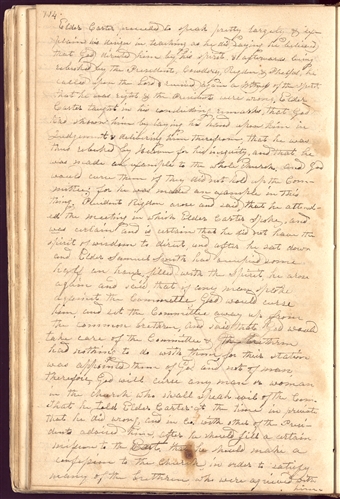 114
Elder Carter proceeded to speak pretty largely & ex-
plain his design in teaching as he did saying he believed
that God directed him by his spirit, & afterwards being
rebuked by the Presidents, Cowdery, Rigdon & Phelps, he
called upon the Lord & received again a witness of the spirit
that he was right & the Presidents were wrong, Elder
Carter taught in his concluding remarks, that God
had shown him by laying his hand upon him in
judgement & delivering him therefrom, that he was
thus rebuked by for his iniquity, and that he
was made an example to the whole Church, and God
would curse them if they did not hold up the Com-
mittee; for he was made an example in this
thing. President Rigdon arose and said that he attend-
ed the meeting in which Elder Carter spoke, and
was certain and is certain that he did not have the
spirit of wisdom to direct, and after he sat down
and Elder Samuel Smith had occupied some
half an hour, filled with the Spirit he arose
again and said that if any man spoke
against the Committee God would curse
him, and set the Committee away up from
the common brethren, and said that God would
take care of the Committee & the brethren
had nothing to do with them, for their station
was appointed them of God and not of man,
therefore God will curse any man or woman
in the church who shall speak evil of the Com.
that he told Elder Carter at the time in private
that he did wrong, and in co. with other of the Presi-
dents advised him, after he should fill a certain
mission to the East, that he should make a
confession to the Church, in order to satisfy
many of the brethren who were aggrieved with